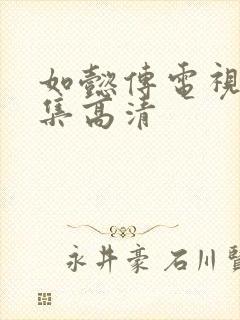 如懿傳電視
集高清
永井豪 石川賢